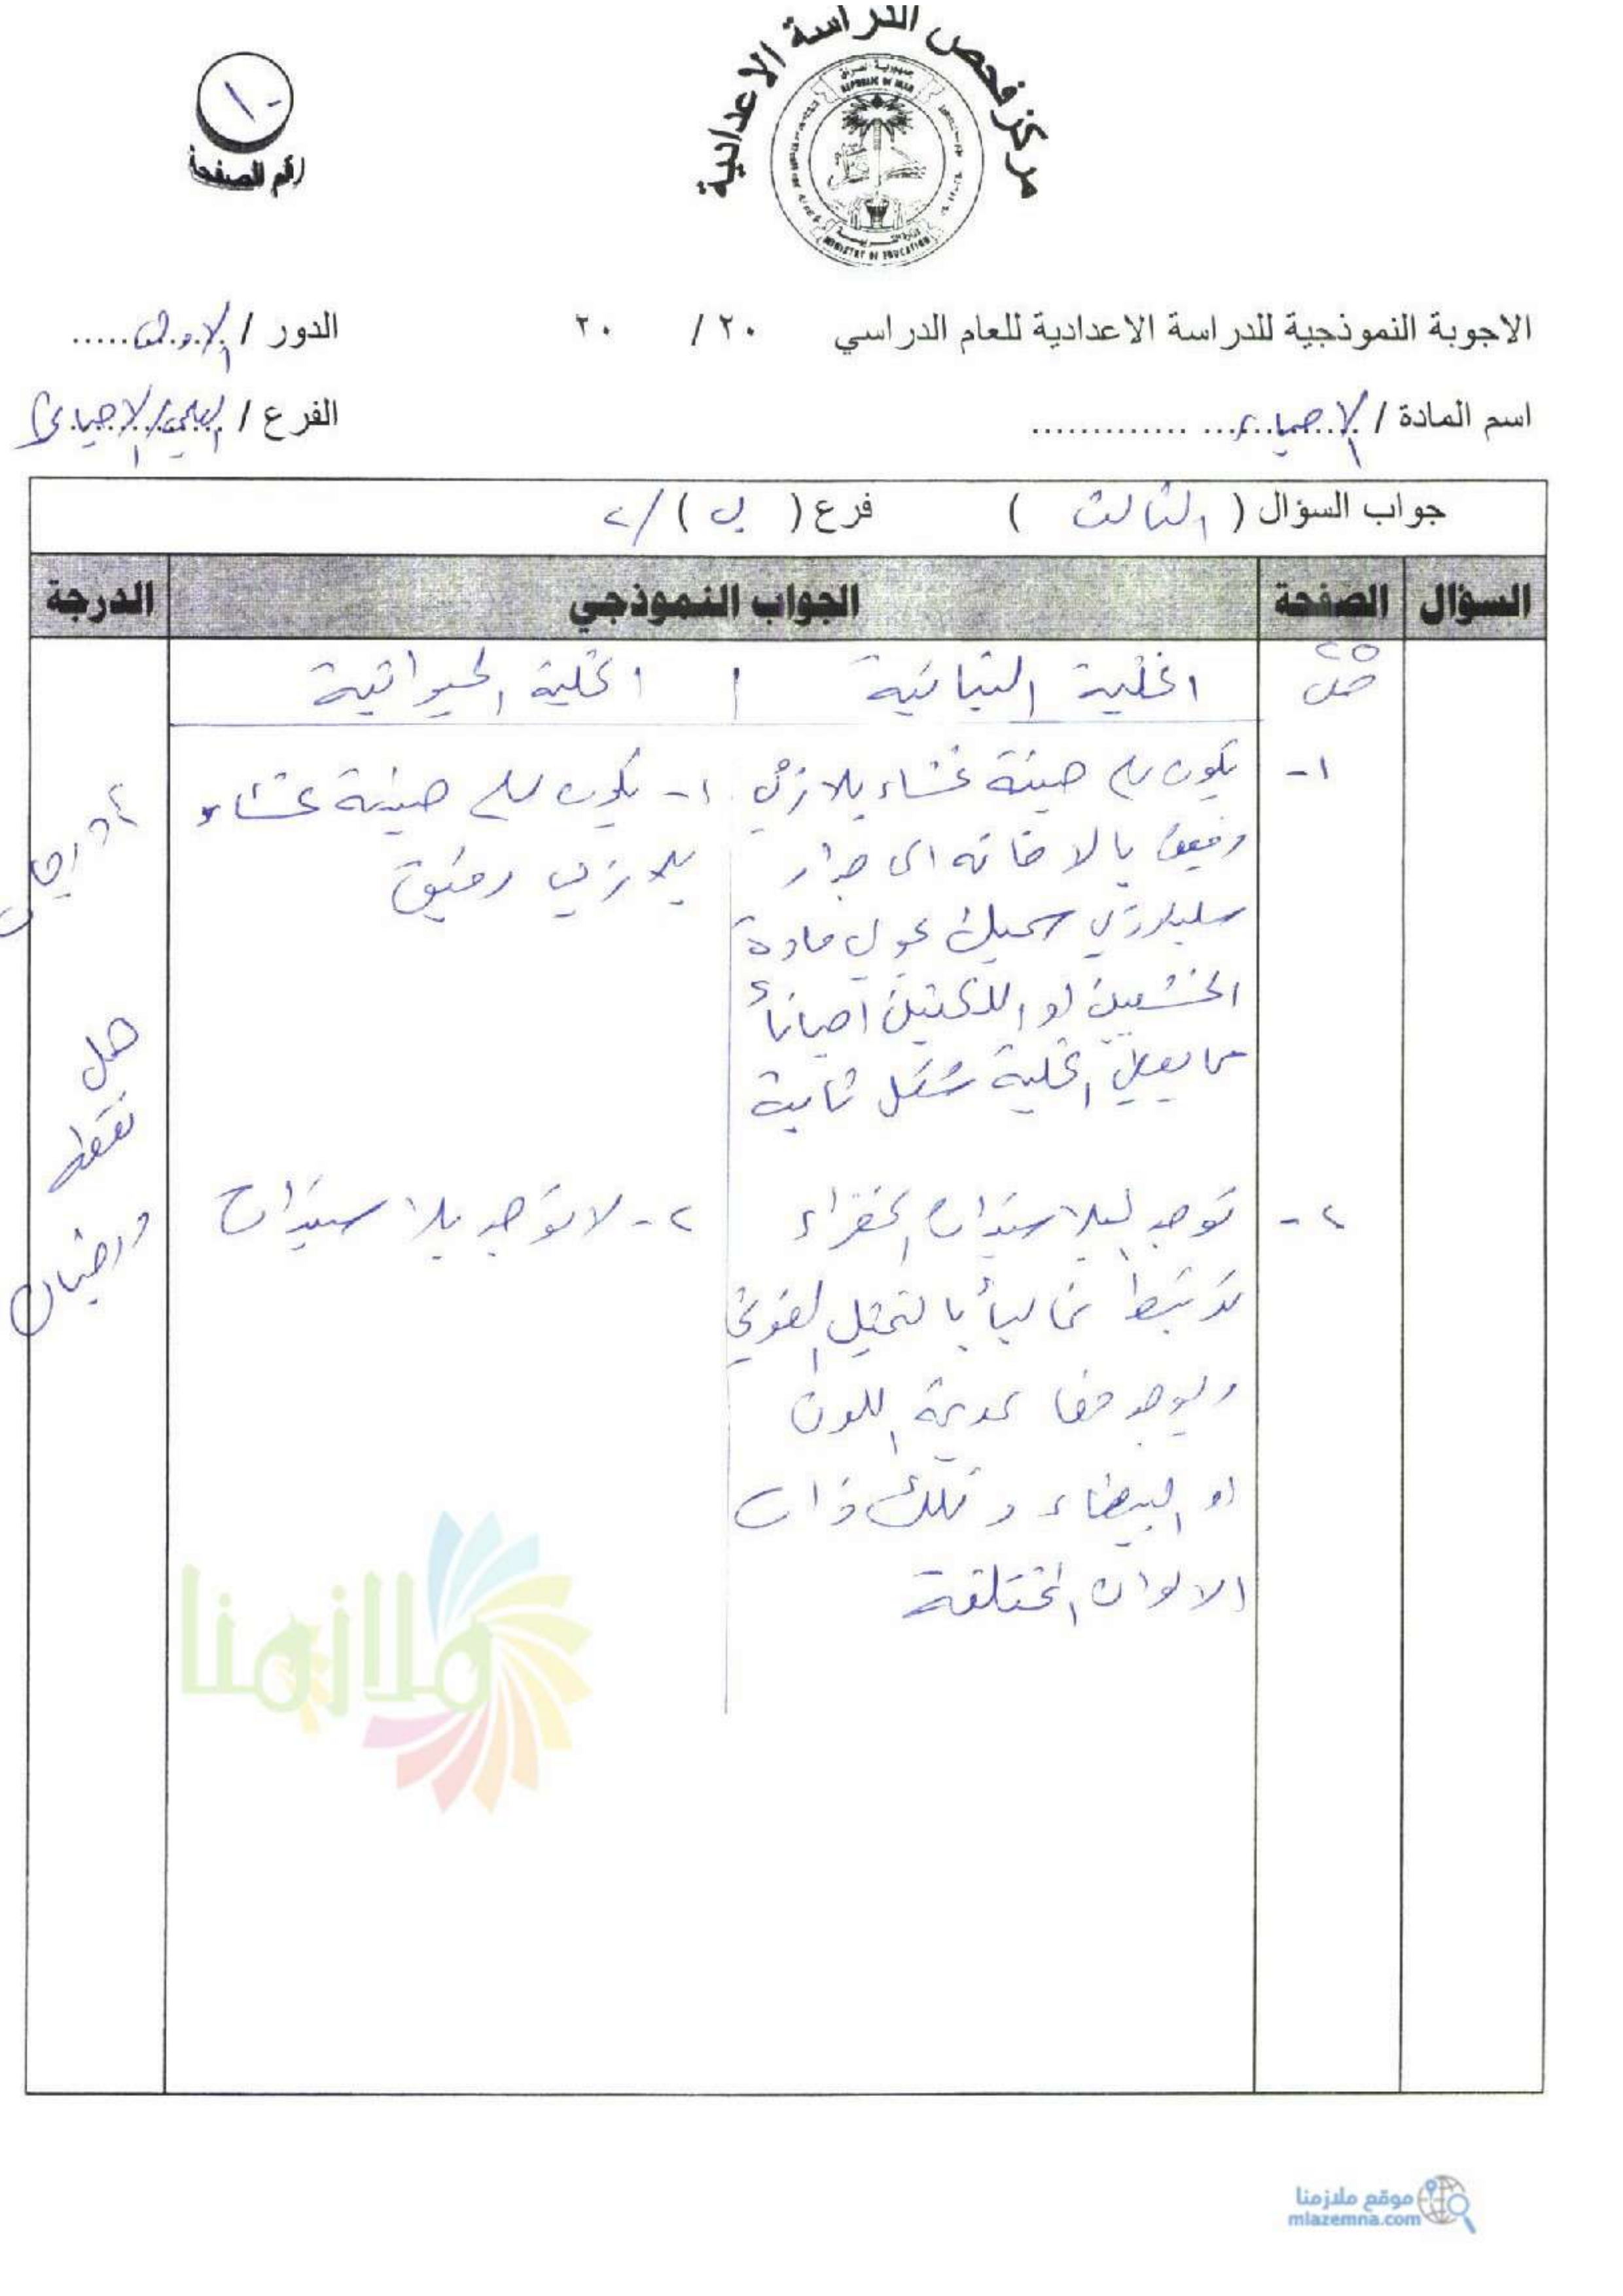 مركز فحص الدراسة الاعدادية
جمهورية العراق
REPUBLIC OF IRAQ
MINISTRY OF EDUCATION
١٠
رقم الصفحة
الاجوبة النموذجية للدراسة الاعدادية للعام الدراسي ٢٠ / ٢٠
الدور / الاول
اسم المادة / الاحياء
الفرع / العلمي/الاحيائي
جواب السؤال ( الثالث ) فرع ( ب ) /٢
السؤال الصفحة الجواب النموذجي الدرجة
ص ٢٥
الخلية النباتية | الخلية الحيوانية
١- يكون على هيئة غشاء بلازمي
رقيق بالاضافه الى جدار
سليلوزي سميك يحوي مادة
الخشبين او اللكنين احياناً
مما يعطي الخلية شكل ثابت
١- يكون على هيئة غشاء
بلازمي رقيق
٤ درجات
لكل
نقطه
درجتان
٢- توجد البلاستيدات الخضراء
ترتبط غالباً بالتمثيل الضوئي
ويوجد منها عديمة اللون
او البيضاء و تلك ذات
الالوان المختلفة
٢- لا توجد بلاستيدات
ملازمنا
موقع ملازمنا
mlazemna.com